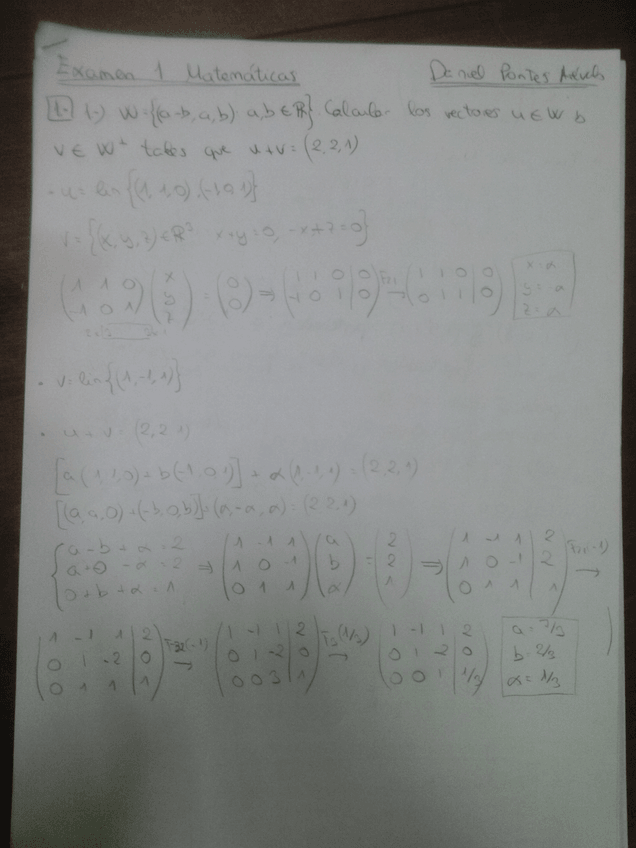 Examen 1 Matemáticas Daniel Pontes
1. (-) W = {(a-b, a, b) a,b ∈ ℝ}. Calcular los vectores u ∈ W b
v ∈ W⊥ tales que u+v = (2,2,1)
· u = lin{(1,1,0),(-1,0,1)}
v = {(x,y,z) ∈ ℝ³ x+y=0, -x+z=0}
(1 1 0; -1 0 1) (x; y; z) = (0; 0) ⇒ (1 1 0 | 0; -1 0 1 | 0) F21 → (1 1 0 | 0; 0 1 1 | 0) x=α y=-α z=α
· v = lin{(1,-1,1)}
· u + v = (2,2,1)
[a(1,1,0)+b(-1,0,1)] + α(1,-1,1) = (2,2,1)
[(a,a,0)+(-b,0,b)]+(α,-α,α) = (2,2,1)
{a-b+α=2; a+0-α=2; 0+b+α=1 ⇒ (1 -1 1; 1 0 -1; 0 1 1) (a; b; α) = (2; 2; 1) ⇒ (1 -1 1 | 2; 1 0 -1 | 2; 0 1 1 | 1) F21(-1) →
(1 -1 1 | 2; 0 1 -2 | 0; 0 1 1 | 1) F32(-1) → (1 -1 1 | 2; 0 1 -2 | 0; 0 0 3 | 1) F3(1/3) → (1 -1 1 | 2; 0 1 -2 | 0; 0 0 1 | 1/3) a = 7/3 b = 2/3 α = 1/3